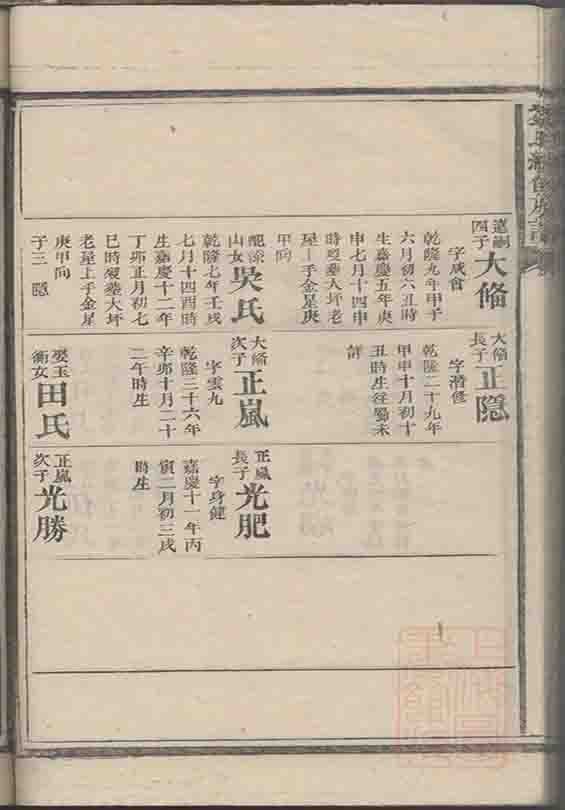 道嗣
四子
大脩
字咸會
乾隆九年甲子
六月初六丑時
生嘉慶五年庚
申七月十四申
時歿塟大坪老
屋上手金星庚
甲向
配添
山女
吳氏
乾隆七年壬戌
七月十四酉時
生嘉慶十二年
丁卯正月初七
巳時歿塟大坪
老屋上手金星
庚甲向
子三 隱
大脩
長子
正隱
字潛修
乾隆二十九年
甲申十月初十
丑時生往蜀未
詳
大脩
次子
正嵐
字雲九
乾隆三十六年
辛卯十月二十
二午時生
娶玉
衡女
田氏
正嵐
長子
光肥
字身健
嘉慶十一年丙
寅二月初三戌
時生
正嵐
次子
光勝